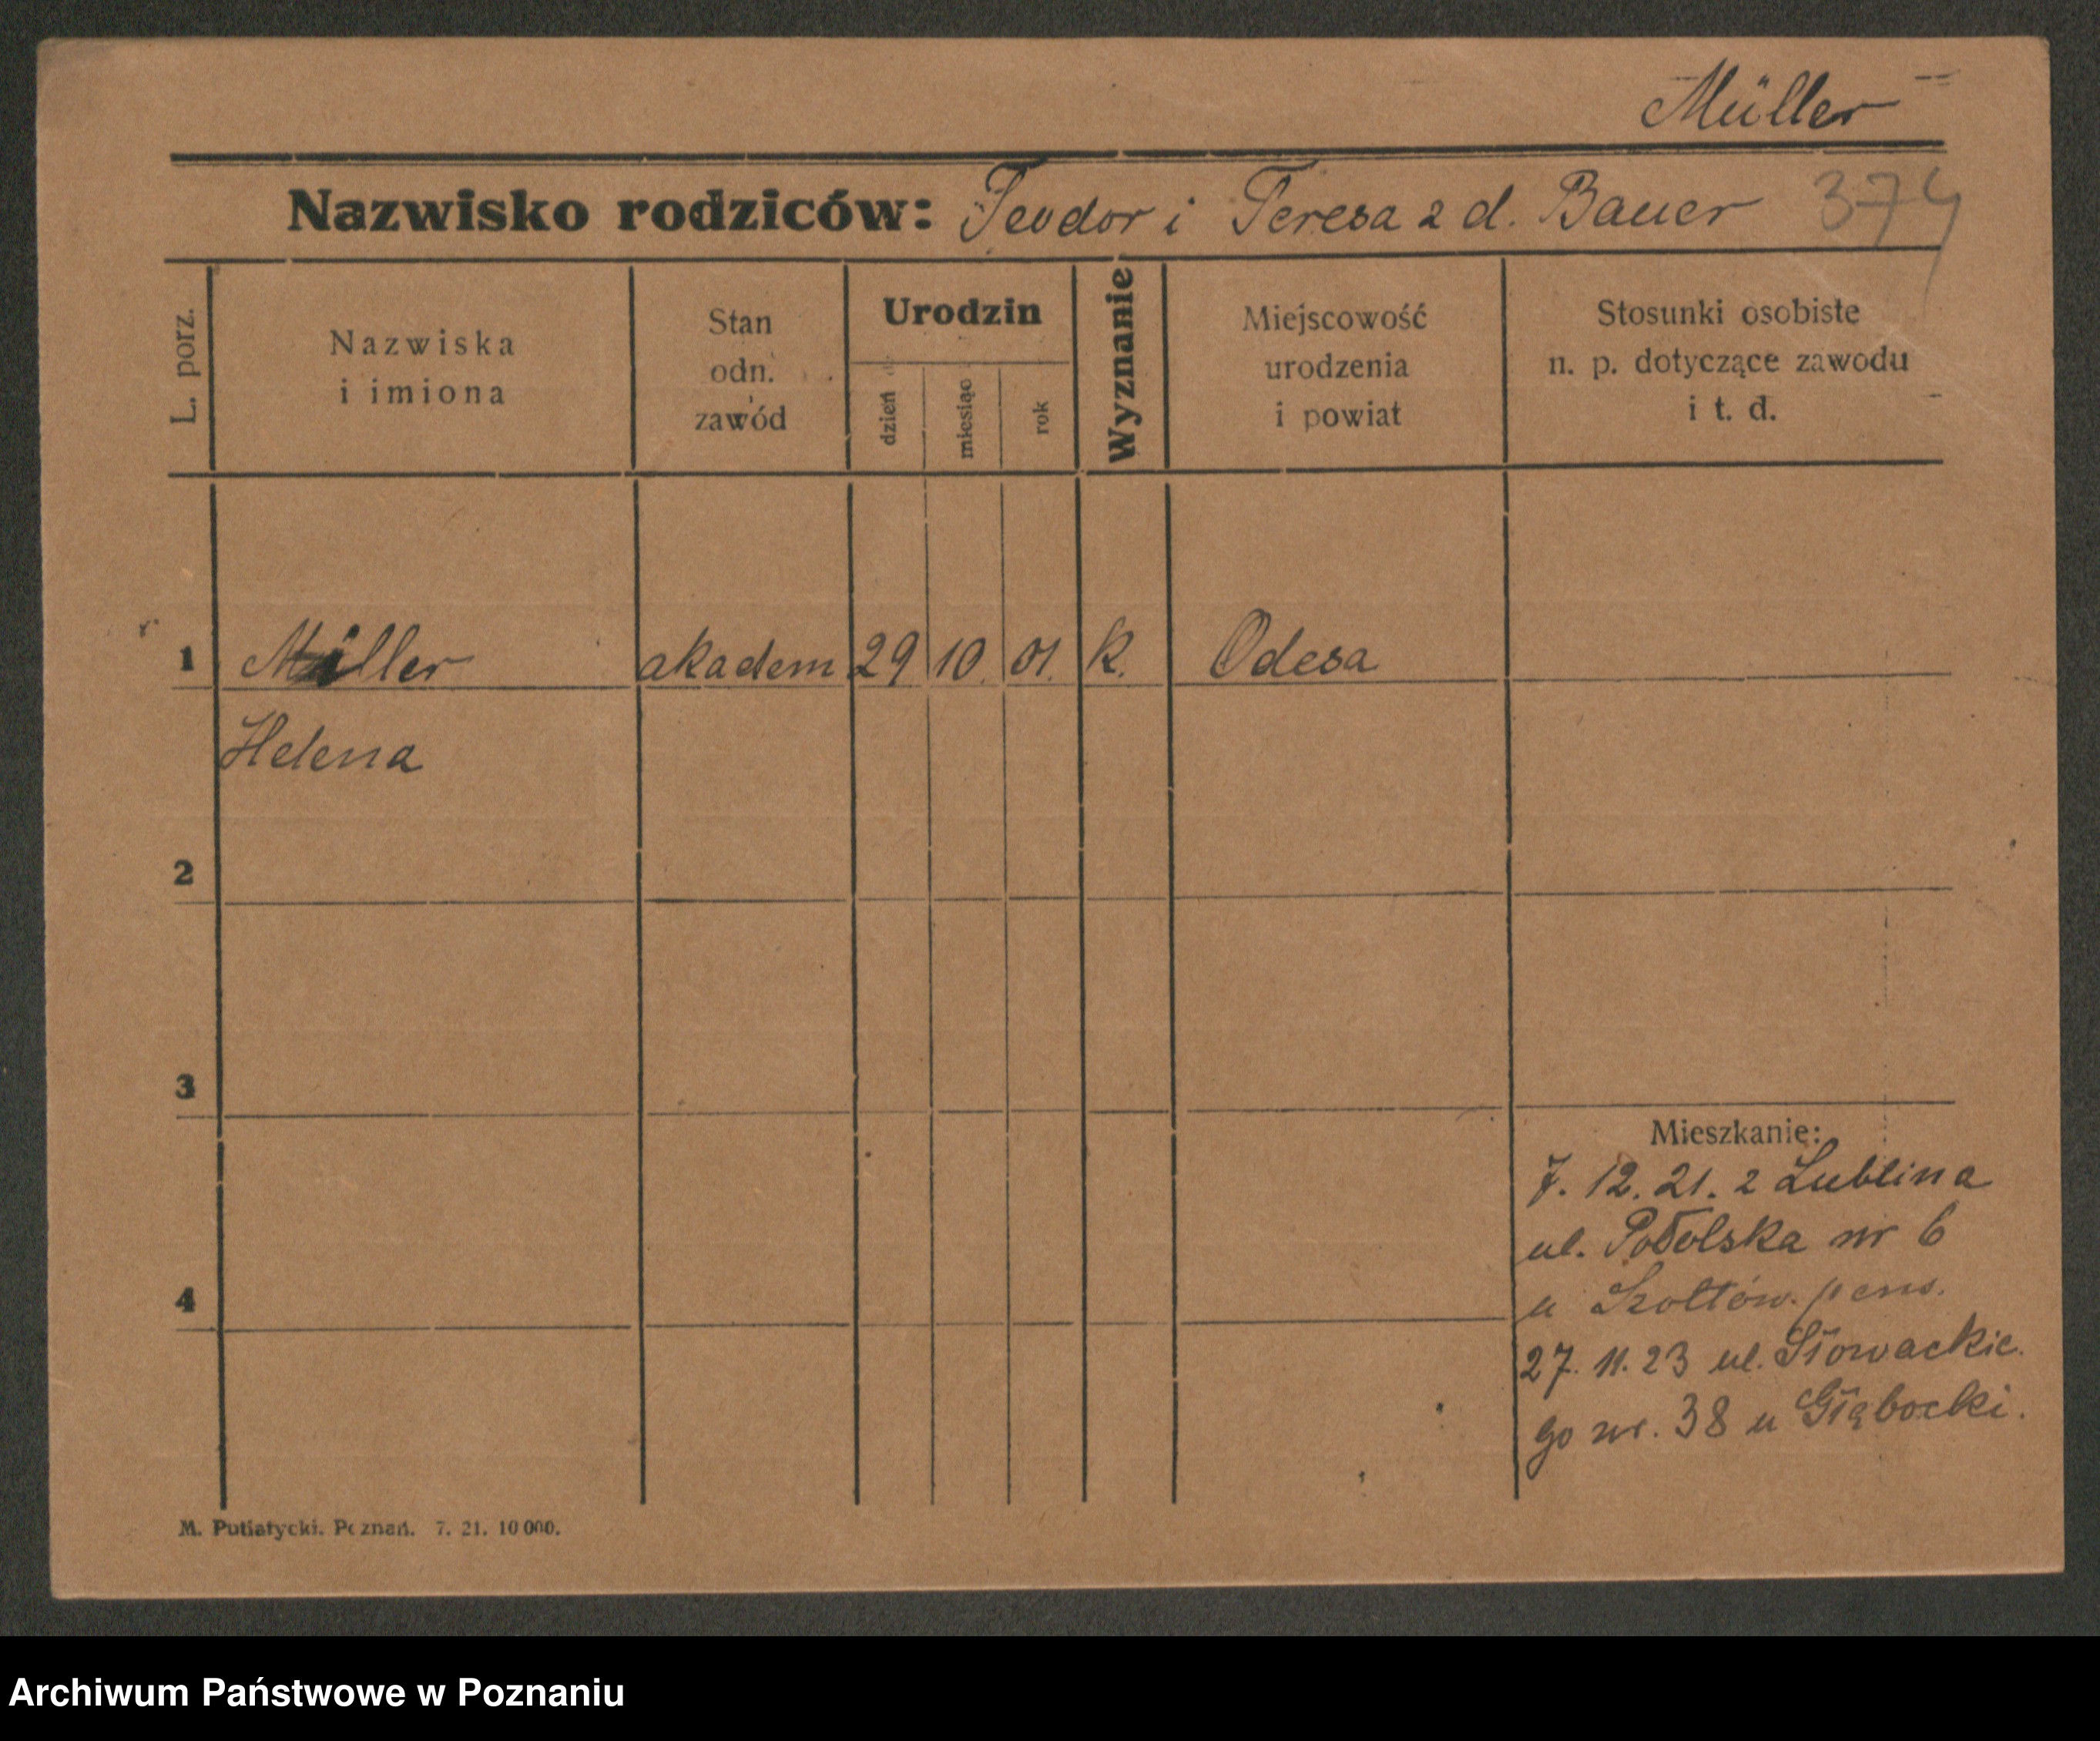 Müller
Nazwisko rodziców: Teodor i Teresa z d. Bauer 374
L. porz.
Nazwiska
i imiona
Stan
odn.
zawód
Urodzin
dzień
miesiąc
rok
Wyznanie
Miejscowość
urodzenia
i powiat
Stosunki osobiste
n. p. dotyczące zawodu
i t. d.
1 Müller akadem 29 10. 01. k. Odesa
Helena
2
3
4
Mieszkanie:
7. 12. 21. z Lublina
ul. Potolska nr 6
u pens.
27. 11. 23 ul. Słowackie
go nr. 38 u Głębocki.
M. Putiatycki. Poznań. 7. 21. 10000.
Archiwum Państwowe w Poznaniu